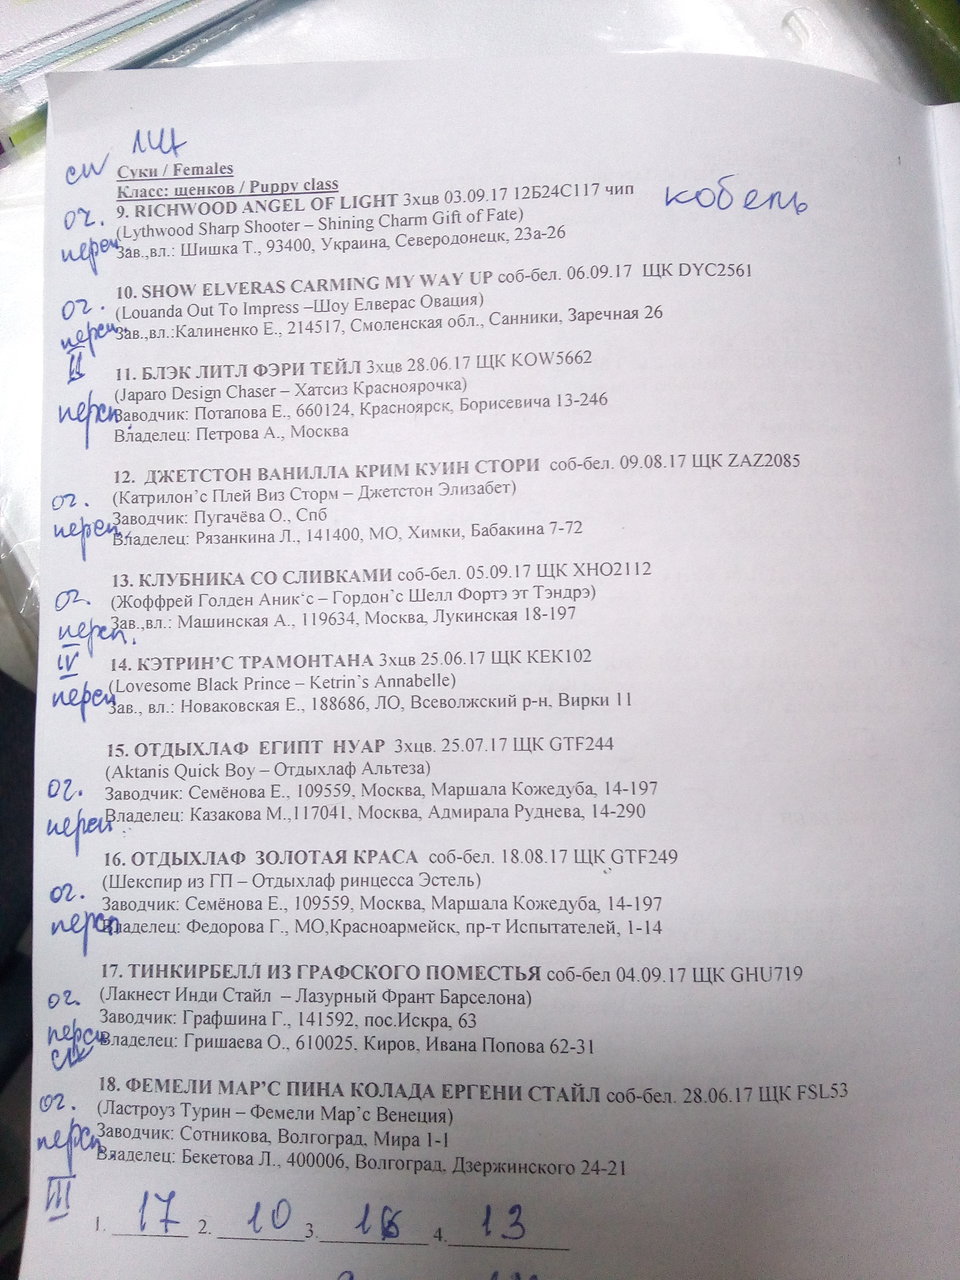 ЛЩ
CW
Суки / Females
Класс: щенков / Puppy class
оч. 9. RICHWOOD ANGEL OF LIGHT 3хцв 03.09.17 12Б24С117 чип кобель
(Lythwood Sharp Shooter – Shining Charm Gift of Fate)
персп. Зав.,вл.: Шишка Т., 93400, Украина, Северодонецк, 23а-26
10. SHOW ELVERAS CARMING MY WAY UP соб-бел. 06.09.17 ЩК DYC2561
оч. (Louanda Out To Impress –Шоу Елверас Овация)
персп. Зав.,вл.:Калиненко Е., 214517, Смоленская обл., Санники, Заречная 26
II
11. БЛЭК ЛИТЛ ФЭРИ ТЕЙЛ 3хцв 28.06.17 ЩК KOW5662
(Japaro Design Chaser – Хатсиз Красноярочка)
персп. Заводчик: Потапова Е., 660124, Красноярск, Борисевича 13-246
Владелец: Петрова А., Москва
12. ДЖЕТСТОН ВАНИЛЛА КРИМ КУИН СТОРИ соб-бел. 09.08.17 ЩК ZAZ2085
оч. (Катрилон`с Плей Виз Сторм – Джетстон Элизабет)
Заводчик: Пугачёва О., Спб
персп. Владелец: Рязанкина Л., 141400, МО, Химки, Бабакина 7-72
13. КЛУБНИКА СО СЛИВКАМИ соб-бел. 05.09.17 ЩК XHO2112
оч. (Жоффрей Голден Аник‘с – Гордон`с Шелл Фортэ эт Тэндрэ)
Зав.,вл.: Машинская А., 119634, Москва, Лукинская 18-197
персп.
IV 14. КЭТРИН’С ТРАМОНТАНА 3хцв 25.06.17 ЩК КЕК102
(Lovesome Black Prince – Ketrin`s Annabelle)
персп Зав., вл.: Новаковская Е., 188686, ЛО, Всеволжский р-н, Вирки 11
15. ОТДЫХЛАФ ЕГИПТ НУАР 3хцв. 25.07.17 ЩК GTF244
(Aktanis Quick Boy – Отдыхлаф Альтеза)
оч. Заводчик: Семёнова Е., 109559, Москва, Маршала Кожедуба, 14-197
персп Владелец: Казакова М.,117041, Москва, Адмирала Руднева, 14-290
16. ОТДЫХЛАФ ЗОЛОТАЯ КРАСА соб-бел. 18.08.17 ЩК GTF249
(Шекспир из ГП – Отдыхлаф ринцесса Эстель)
оч. Заводчик: Семёнова Е., 109559, Москва, Маршала Кожедуба, 14-197
персп Владелец: Федорова Г., МО,Красноармейск, пр-т Испытателей, 1-14
17. ТИНКИРБЕЛЛ ИЗ ГРАФСКОГО ПОМЕСТЬЯ соб-бел 04.09.17 ЩК GHU719
оч. (Лакнест Инди Стайл – Лазурный Франт Барселона)
Заводчик: Графшина Г., 141592, пос.Искра, 63
персп Владелец: Гришаева О., 610025. Киров, Ивана Попова 62-31
18. ФЕМЕЛИ МАР’С ПИНА КОЛАДА ЕРГЕНИ СТАЙЛ соб-бел. 28.06.17 ЩК FSL53
оч. (Ластроуз Турин – Фемели Мар`с Венеция)
Заводчик: Сотникова, Волгоград, Мира 1-1
персп. Владелец: Бекетова Л., 400006, Волгоград, Дзержинского 24-21
III
1. 17 2. 10 3. 18 4. 13